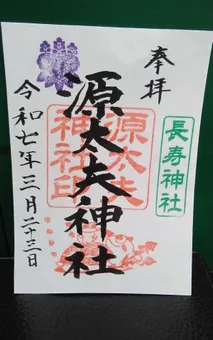 奉拝
長寿神社
源太夫神社
源太夫
神社印
令和七年三月二十三日